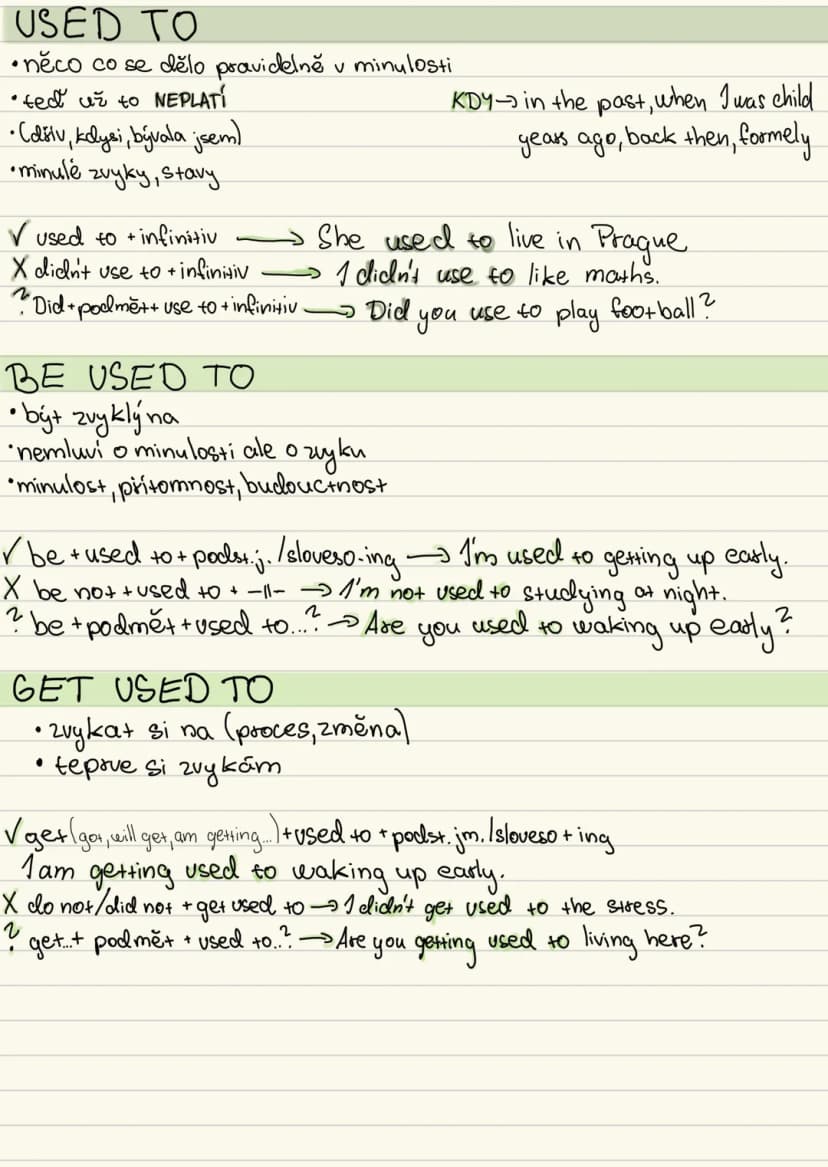 USED TO
•něco co se dělo pravidelně v minulosti
•teď už to NEPLATÍ
KDY→in the past, when I was child
•(dřív, kdysi, bývala jsem)
years ago, back then, formely
•minulé zvyky, stavy
✓ used to + infinitiv → She used to live in Prague
X didn't use to + infinitiv → I didn't use to like maths.
? Did + podmět + use to + infinitiv → Did you use to play football?
BE USED TO
•být zvyklý na
•nemluví o minulosti ale o zvyku
•minulost, přítomnost, budouctnost
✓ be + used to + podst.j. /sloveso-ing → I'm used to getting up early.
X be not + used to + -||- → I'm not used to studying at night.
? be + podmět + used to...? → Are you used to waking up early?
GET USED TO
• zvykat si na (proces, změna)
• teprve si zvykám
✓ get (got, will get, am getting...) + used to + podst. jm. /sloveso + ing
I am getting used to waking up early.
X do not/did not + get used to → I didn't get used to the stress.
? get...+ podmět + used to..? → Are you getting used to living here?